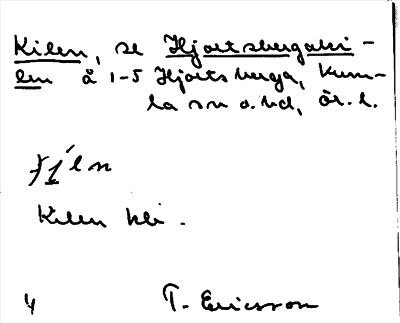 Kilen, se Hjortsbergaki-
len å 1-5 Hjortsberga, Kum-
la sn o. hd, ör. l.
Kilen hli.
4 T. Ericsson